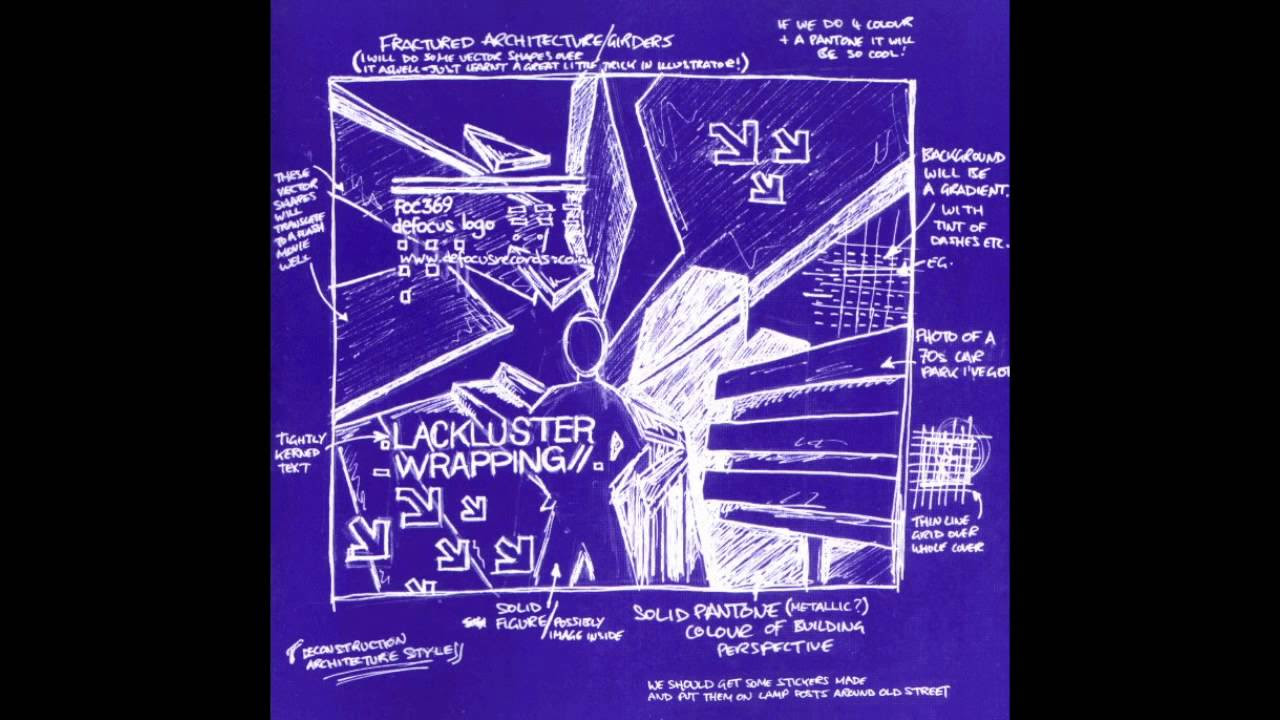 FRACTURED ARCHITECTURE/GIRDERS
(I WILL DO SOME VECTOR SHAPES OVER
IT ASWELL - JUST LEARNT A GREAT LITTLE TRICK IN ILLUSTRATOR!)
IF WE DO 4 COLOUR
+ A PANTONE IT WILL
BE SO COOL!
THESE
VECTOR
SHAPES
WILL
TRANSLATE
TO A FLASH
MOVIE
WELL
FOC369
defocus logo
www.defocusrecords.co.u
BACKGROUND
WILL BE
A GRADIENT.
WITH
TINT OF
DASHES ETC.
EG.
PHOTO OF A
70s CAR
PARK I'VE GOT
TIGHTLY
KERNED
TEXT
LACKLUSTER
WRAPPING//.
THIN LINE
GRID OVER
WHOLE COVER
SOLID
FIGURE/POSSIBLY
IMAGE INSIDE
SOLID PANTONE (METALLIC?)
COLOUR OF BUILDING
PERSPECTIVE
DECONSTRUCTION
ARCHITECTURE STYLE//
WE SHOULD GET SOME STICKERS MADE
AND PUT THEM ON LAMP POSTS AROUND OLD STREET